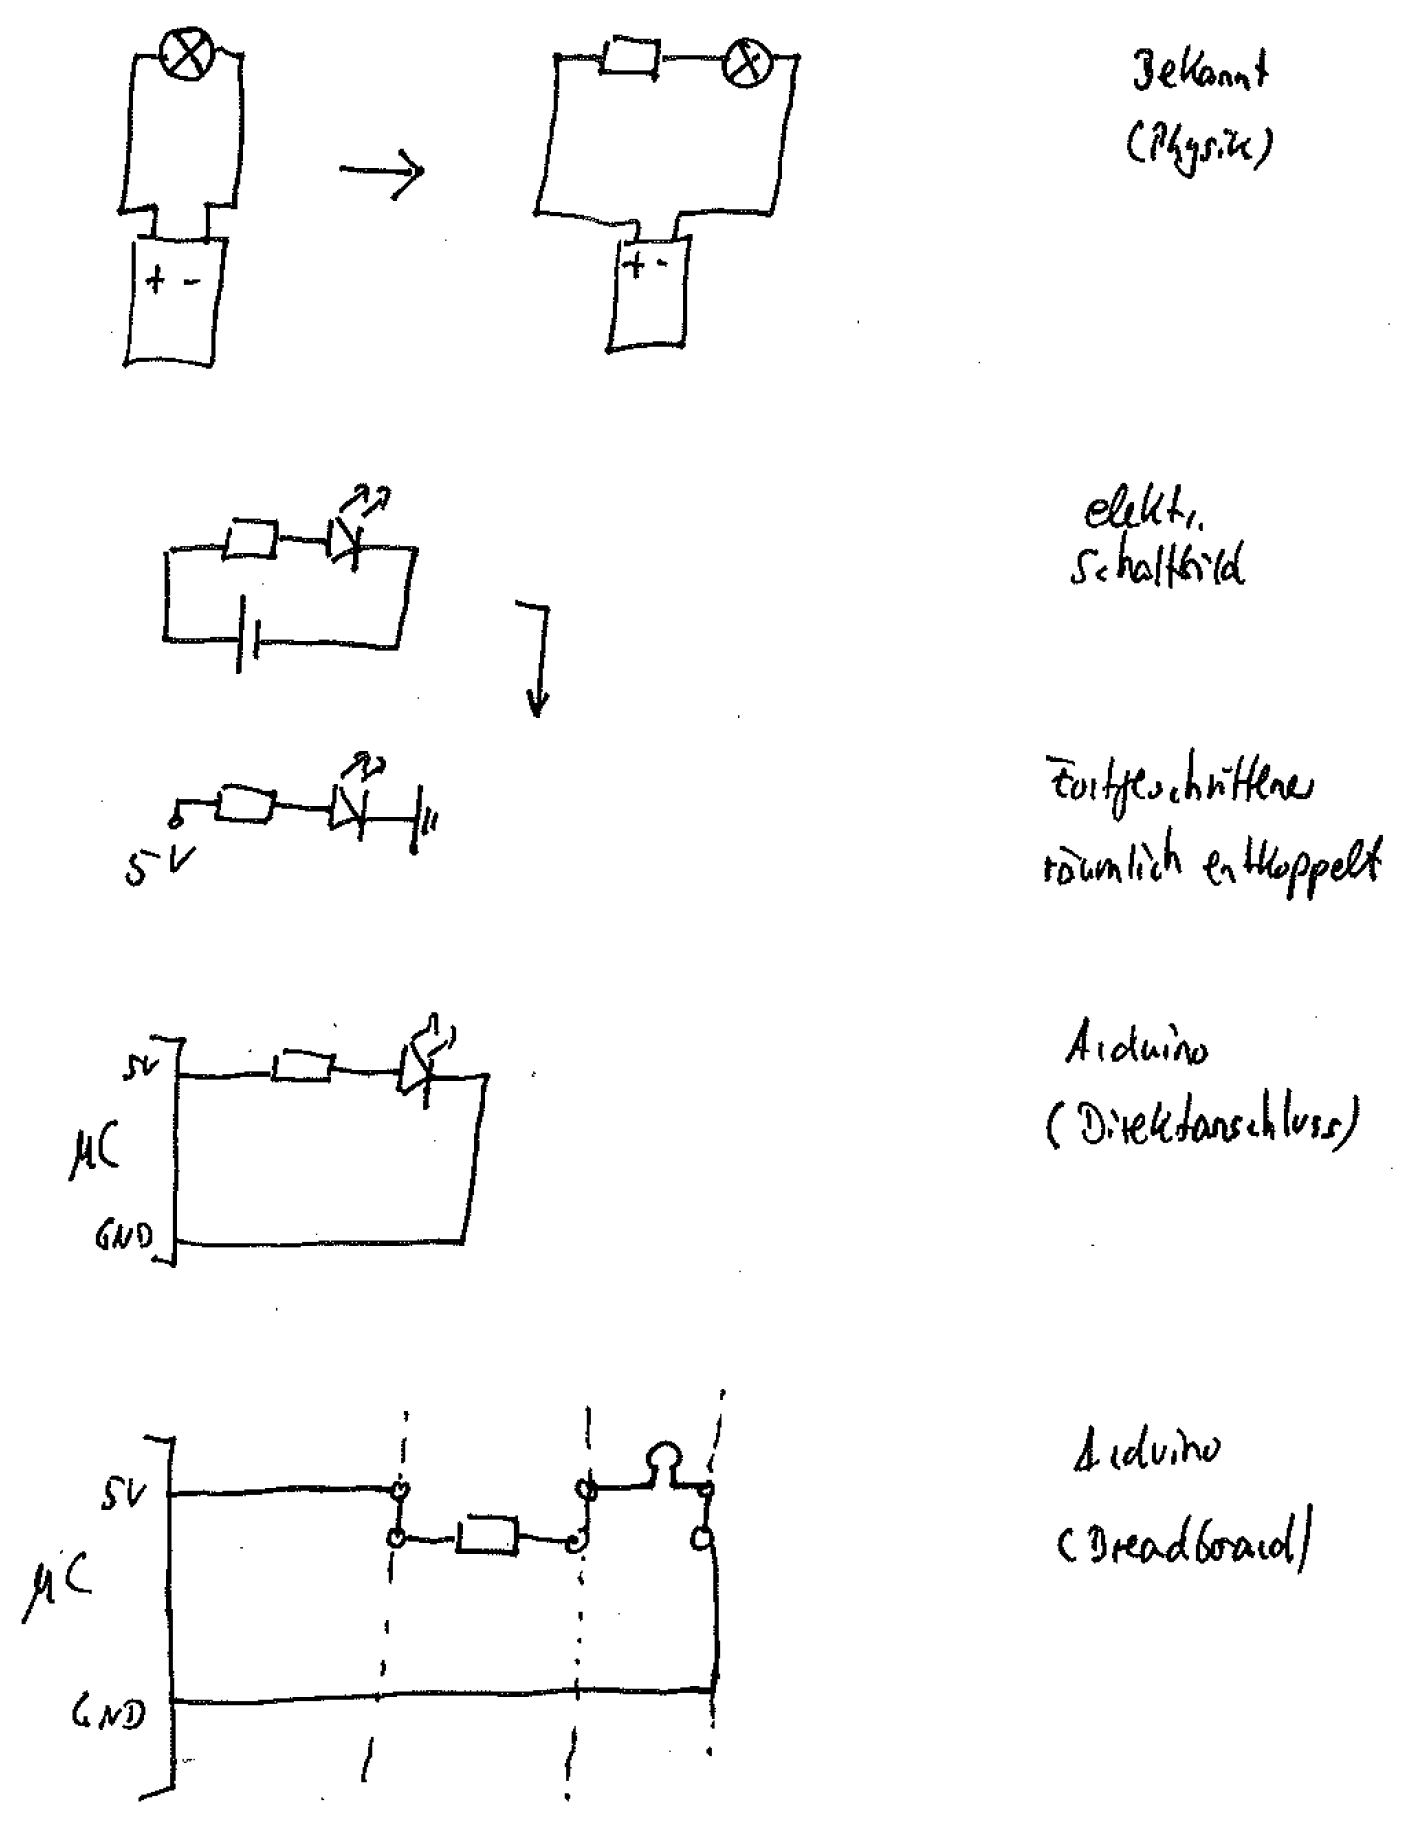 Bekannt
(Physik)
+ -
+ -
elektr.
Schaltbild
Fortgeschrittene
räumlich entkoppelt
5V
Arduino
(Direktanschluss)
5V
µC
GND
Arduino
(Breadboard)
5V
µC
GND